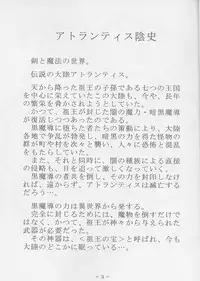 アトランティス陰史
剣と魔法の世界。
伝説の大陸アトランティス。
天から降った祖王の子孫である七つの王国
を中心に栄えていたこの大陸も、今や、長年
の繁栄を脅かされようとしていた。
かつて、祖王が封じた闇の魔力・暗黒魔導
が復活しようとしていたのである。
黒魔導に堕ちた者たちの策動により、大陸
各地で争乱が起こり、暗黒の力を得た怪物の
群が町や村を次々と襲い、人々は、恐怖と絶
望に、おしつぶされようとしていた。
また、それと同時に、闇の種族による直接
の侵略も、日を追って激しくなっていく。
黒魔導の者共を倒し、その力を封印しなけ
れば、遠からず、アトランティスは滅亡する
だろう…。
黒魔導の力は異世界から発する。
完全に封じるためには、魔物を倒すだけで
はなく、かつて、祖王が神々から与えられた
武器が必要だった。
その神器は、<祖王の宝>と呼ばれ、今も大
陸のどこかに眠っている…。
- 3 -